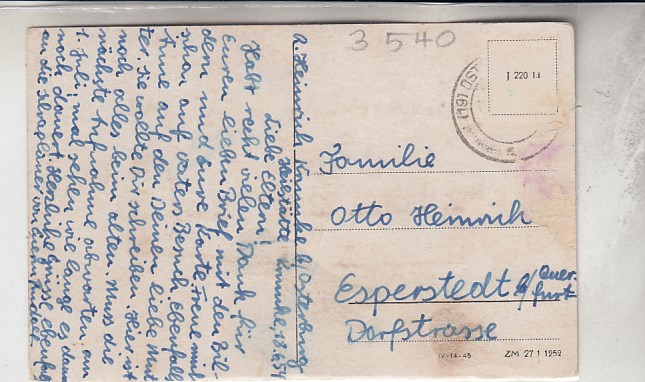 3 540
J 220 Li
(19) OST
A. Heinrich, Krumke b/Osterburg
Heilstätte Krumke, 18.6.54
Liebe Eltern!
Habt recht vielen Dank für
Euren lieben Brief mit den Bil-
dern und Eure Karte. Freue mich
schon auf Vaters Besuch. Ebenfalls
Anne auf den Deinen liebe Mut-
ter. Sie wollte Dir schreiben. Hier ist
noch alles beim alten. Muss die
nächste Aufnahme abwarten am
1. Juli, mal sehen wie lange es dann
noch dauert. Herzliche Grüsse ebenfalls
an die
von
Familie
Otto Heinrich
Esperstedt b/Quer-
furt
Dorfstrasse
IV-14-45 ZM 27 1 1252